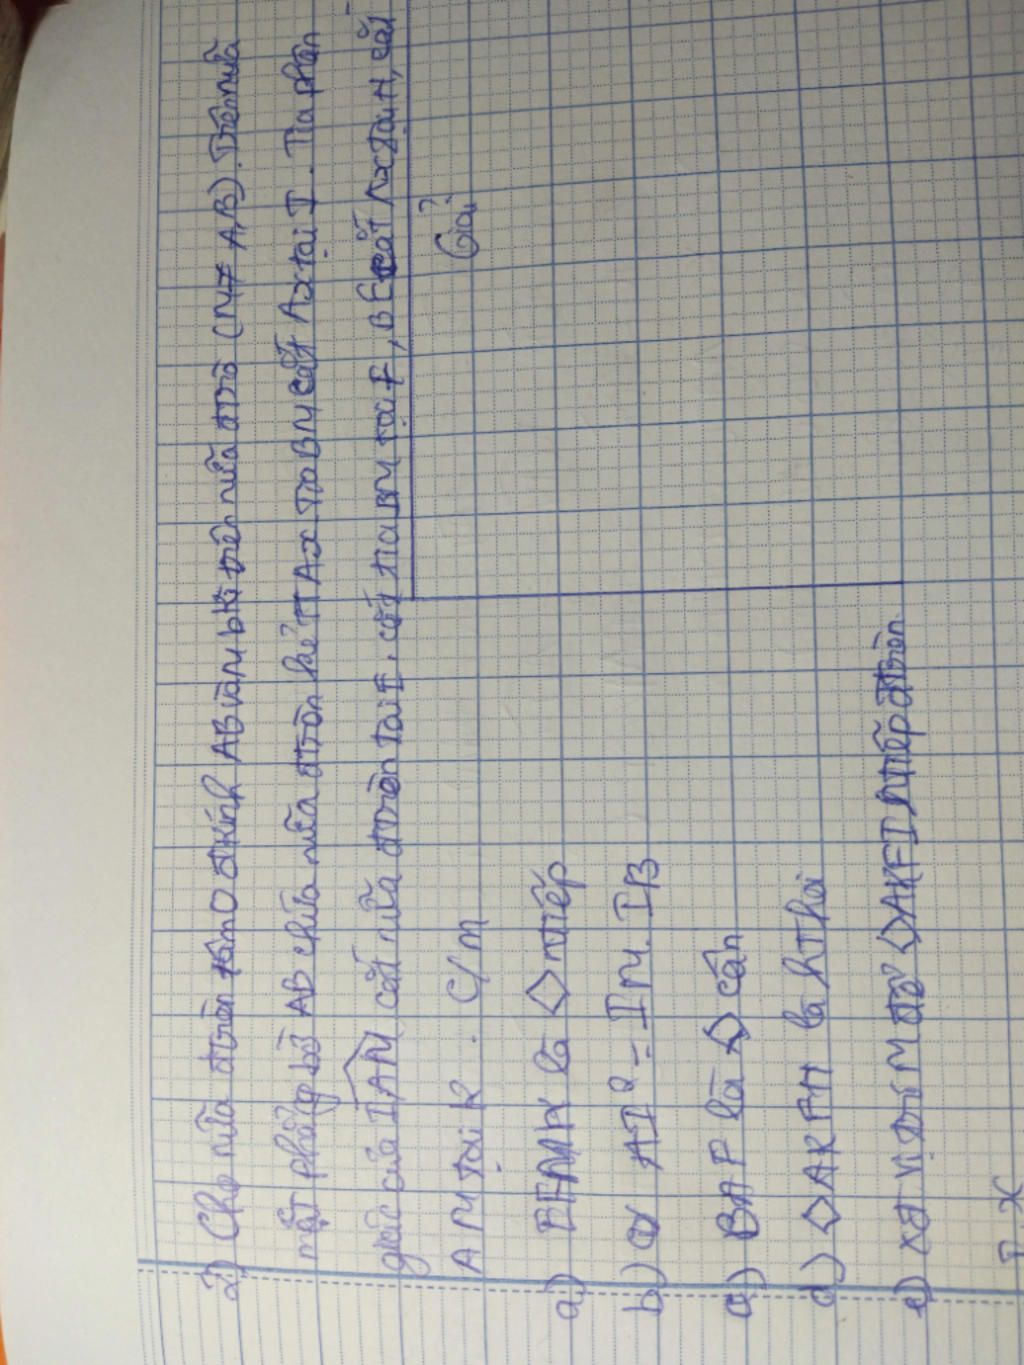 2) Cho nửa đtròn tâm O đkính AB và M bkì trên nửa đtrò (M ≠ A,B). Trên nửa
mặt phẳng bờ AB chứa nửa đtròn kẻ TT Ax. Tia BM cắt Ax tại I. Tia phân
giác của IAM cắt nửa đtròn tại E, cắt tia BM tại F, BE cắt Ax tại H, cắt
AM tại K. C/m
Giải
a) EFMK là ◇ ntiếp
b) AI² = IM. IB
c) BAF là cân
d) ◇AKFH là hthoi
e) xđ vị trí M để ◇AKFI ntiếp đtròn